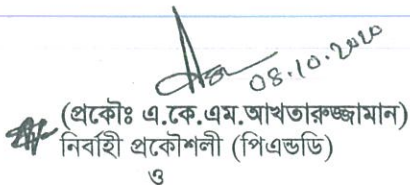 08.10.2020
(প্রকৌঃ এ.কে.এম.আখতারুজ্জামান)
নির্বাহী প্রকৌশলী (পিএন্ডডি)
ও